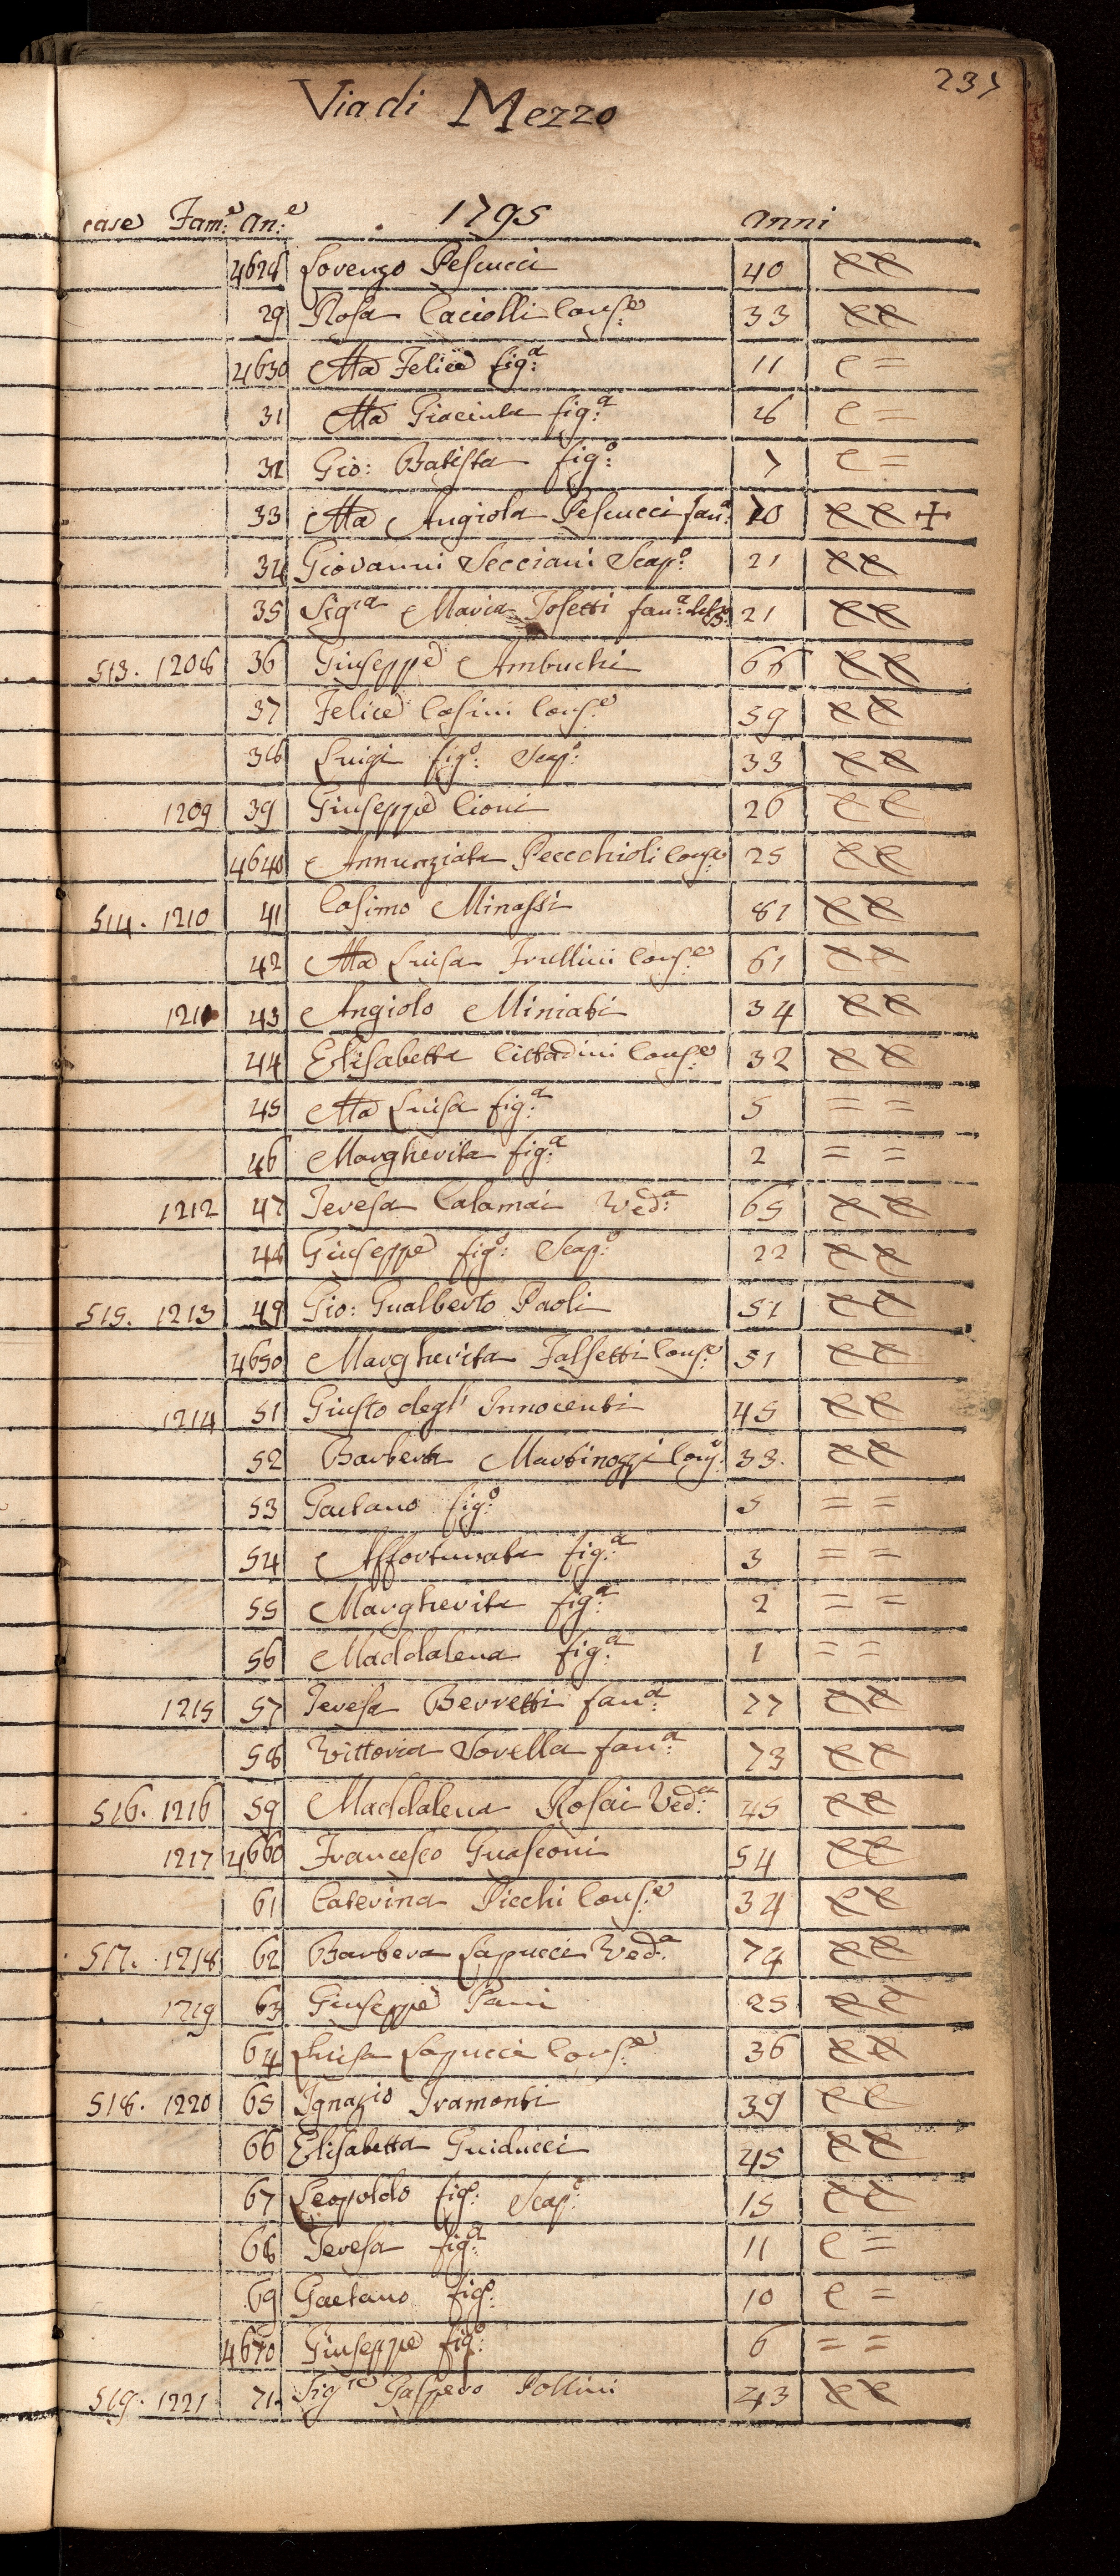 237
Via di Mezzo
case Fam:e an:e 1795 anni
4628 Lorenzo Pescucci 40 ee
29 Rosa Caciolli Cons:e 33 ee
4630 Ma Felice fig:a 11 e =
31 Ma Giacinta fig:a 8 e =
32 Gio: Batista fig:o 7 e =
33 Ma Angiola Pescucci fan:a 70 ee +
34 Giovanni Secciani Scap:o 21 ee
35 Sig.ra Maria Tosetti fan:a 21 ee
513. 1208 36 Giuseppe Ambuchi 66 ee
37 Felice Casini Cons:e 59 ee
38 Luigi fig:o Scap:o 33 ee
1209 39 Giuseppe Cioni 26 ee
4640 Annunziata Pecchioli Cons:e 25 ee
514. 1210 41 Cosimo Minassi 81 ee
42 Ma Luisa Frullini Cons:e 61 ee
1211 43 Angiolo Miniati 34 ee
44 Elisabetta Cittadini Cons:e 32 ee
45 Ma Luisa fig:a 5 = =
46 Margherita fig:a 2 = =
1212 47 Teresa Calamai Ved:a 65 ee
48 Giuseppe fig:o Scap:o 22 ee
515. 1213 49 Gio: Gualberto Paoli 51 ee
4650 Margherita Falsetti Cons:e 51 ee
1214 51 Giusto degl' Innocenti 45 ee
52 Barbera Martinozzi Cons: 33. ee
53 Gaetano fig:o 5 = =
54 Affortunata fig:a 3 = =
55 Margherita fig:a 2 = =
56 Maddalena fig:a 1 = =
1215 57 Teresa Berretti fan:a 77 ee
58 Vittoria Sorella fan:a 73 ee
516. 1216 59 Maddalena Rosai Ved:a 45 ee
1217 4660 Francesco Guasconi 54 ee
61 Caterina Picchi Cons:e 34 ee
517. 1218 62 Barbera Lapucci Ved:a 74 ee
1219 63 Giuseppe Pani 25 ee
64 Luisa Lapucci Cons:e 36 ee
518. 1220 65 Ignazio Tramonti 39 ee
66 Elisabetta Guiducci 45 ee
67 Leopoldo fig:o Scap:o 15 ee
68 Teresa fig:a 11 e =
69 Gaetano fig:o 10 e =
4670 Giuseppe fig:o 6 = =
519. 1221 71. Sig.re Gaspero Pollini 43 ee